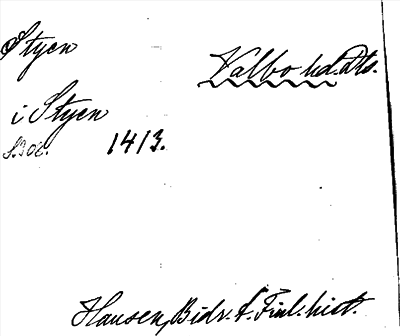 Styen
Valbo hd. Dls.
i Styen
S. 302. 1413.
Hausen, Bidr. t. Finl. hist.